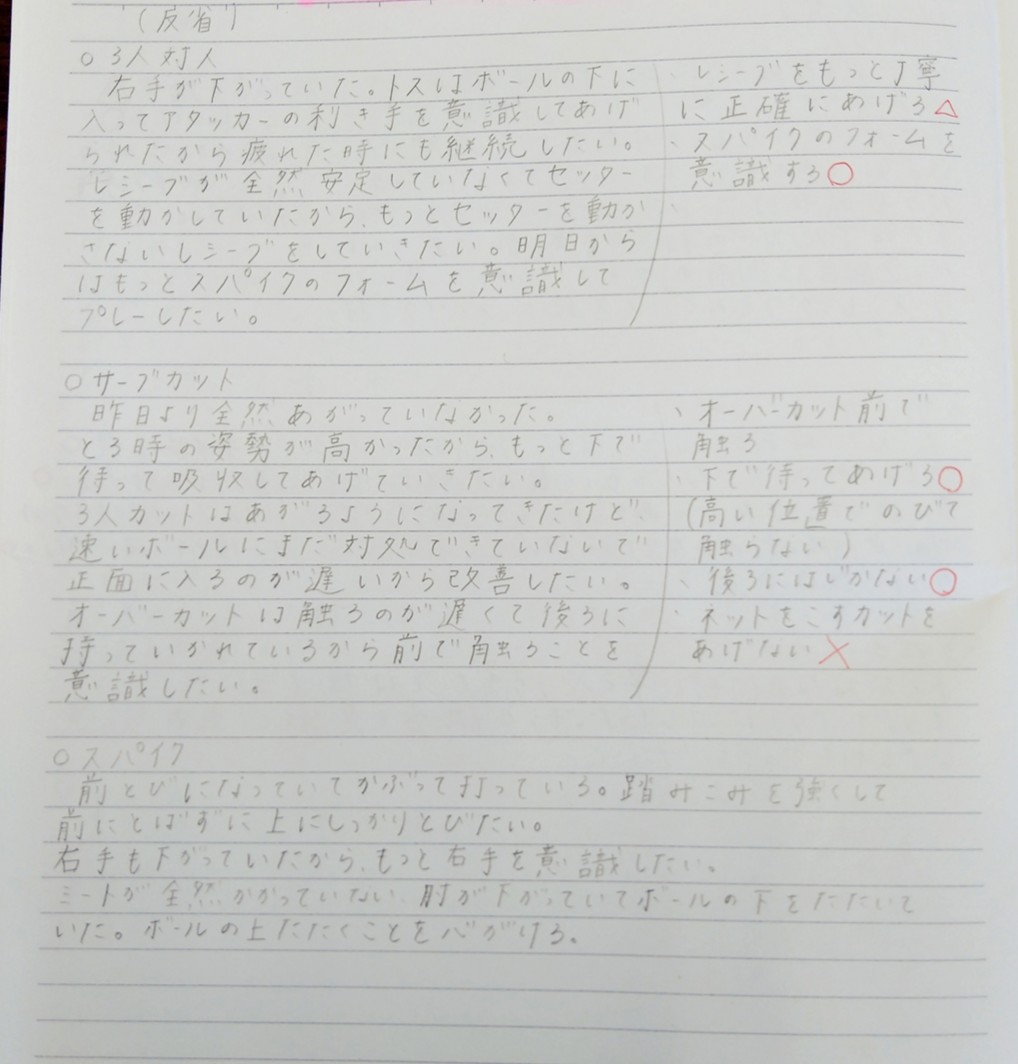 (反省)
○3人対人
右手が下がっていた。トスはボールの下に
入ってアタッカーの利き手を意識してあげ
られたから疲れた時にも継続したい。
レシーブが全然安定していなくてセッター
を動かしていたから、もっとセッターを動か
さないレシーブをしていきたい。明日から
はもっとスパイクのフォームを意識して
プレーしたい。
、レシーブをもっと丁寧
に正確にあげる△
、スパイクのフォームを
意識する○
、
○サーブカット
昨日より全然あがっていなかった。
とる時の姿勢が高かったから、もっと下で
待って吸収してあげていきたい。
3人カットはあがるようになってきたけど、
速いボールにまだ対処できていないで
正面に入るのが遅いから改善したい。
オーバーカットは触るのが遅くて後ろに
持っていかれているから前で触ることを
意識したい。
、オーバーカット前で
触る
、下で待ってあげる○
(高い位置でのびて
触らない)
、後ろにはじかない○
、ネットをこすカットを
あげない×
○スパイク
前とびになっていてかぶって打っている。踏みこみを強くして
前にとばずに上にしっかりとびたい。
右手も下がっていたから、もっと右手を意識したい。
ミートが全然かかっていない、肘が下がっていてボールの下をたたいて
いた。ボールの上たたくことを心がける。